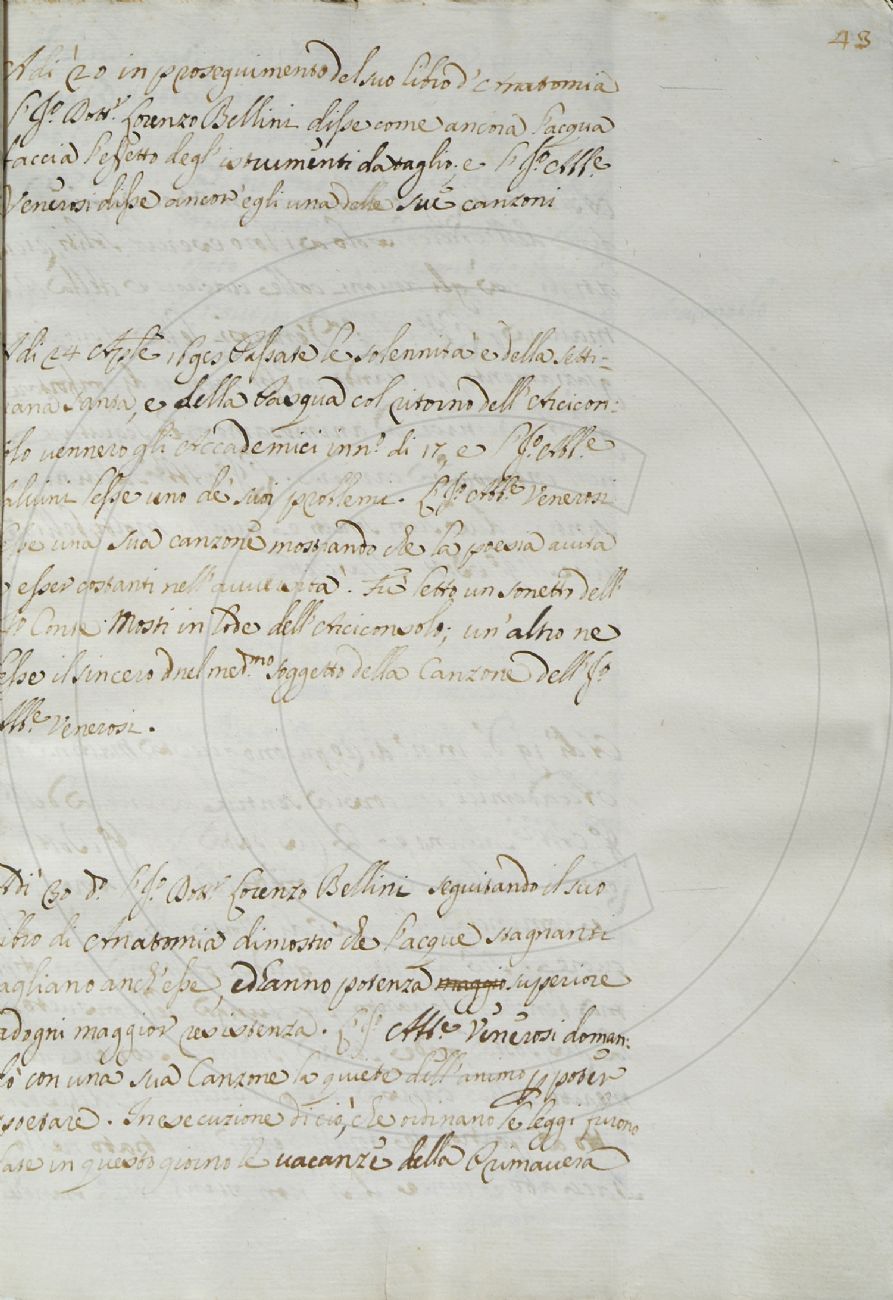 43
Adi 20 in proseguimento del suo libro d'Anatomia
l'Jll.º Dott.r Lorenzo Bellini disse come ancora l'acqua
faccia l'effetto degl'istrumenti da taglio; e l'Jll.º Abb.e
Venerosi disse ancor'egli una delle sue canzoni
Adi 24 Aple 1695 Passate le solennità della Setti=
mana Santa, e della Pasqua col ritorno dell'Arcicon:
solo vennero gli Accademici in n.º di 17, e l'Jll.º Abb.e
Salvini lesse uno de' suoi problemi. L'Jll.º Abb.e Venerosi
lesse una sua canzone mostrando che la poesia aiuta
a esser costanti nell'avversità. Fu letto un sonetto dell'
Jll.º Conte Mosti in lode dell'Arciconsolo; un'altro ne
lesse il sincero nel med.mo soggetto della Canzone dell'Jll.º
Abb.e Venerosi.
Adì 30 d.º l'Jll.º Dott.r Lorenzo Bellini seguitando il suo
libro di Anatomia dimostrò che l'acque stagnanti
tagliano anch'esse, ed hanno potenza maggio superiore
ad ogni maggior resistenza. L'Jll.º Abb.e Venerosi doman:
dò con una sua Canzone la quiete dell'animo p poter
poetare. In esecuzione di ciò, che ordinano le leggi furono
date in questo giorno le vacanze della Primavera